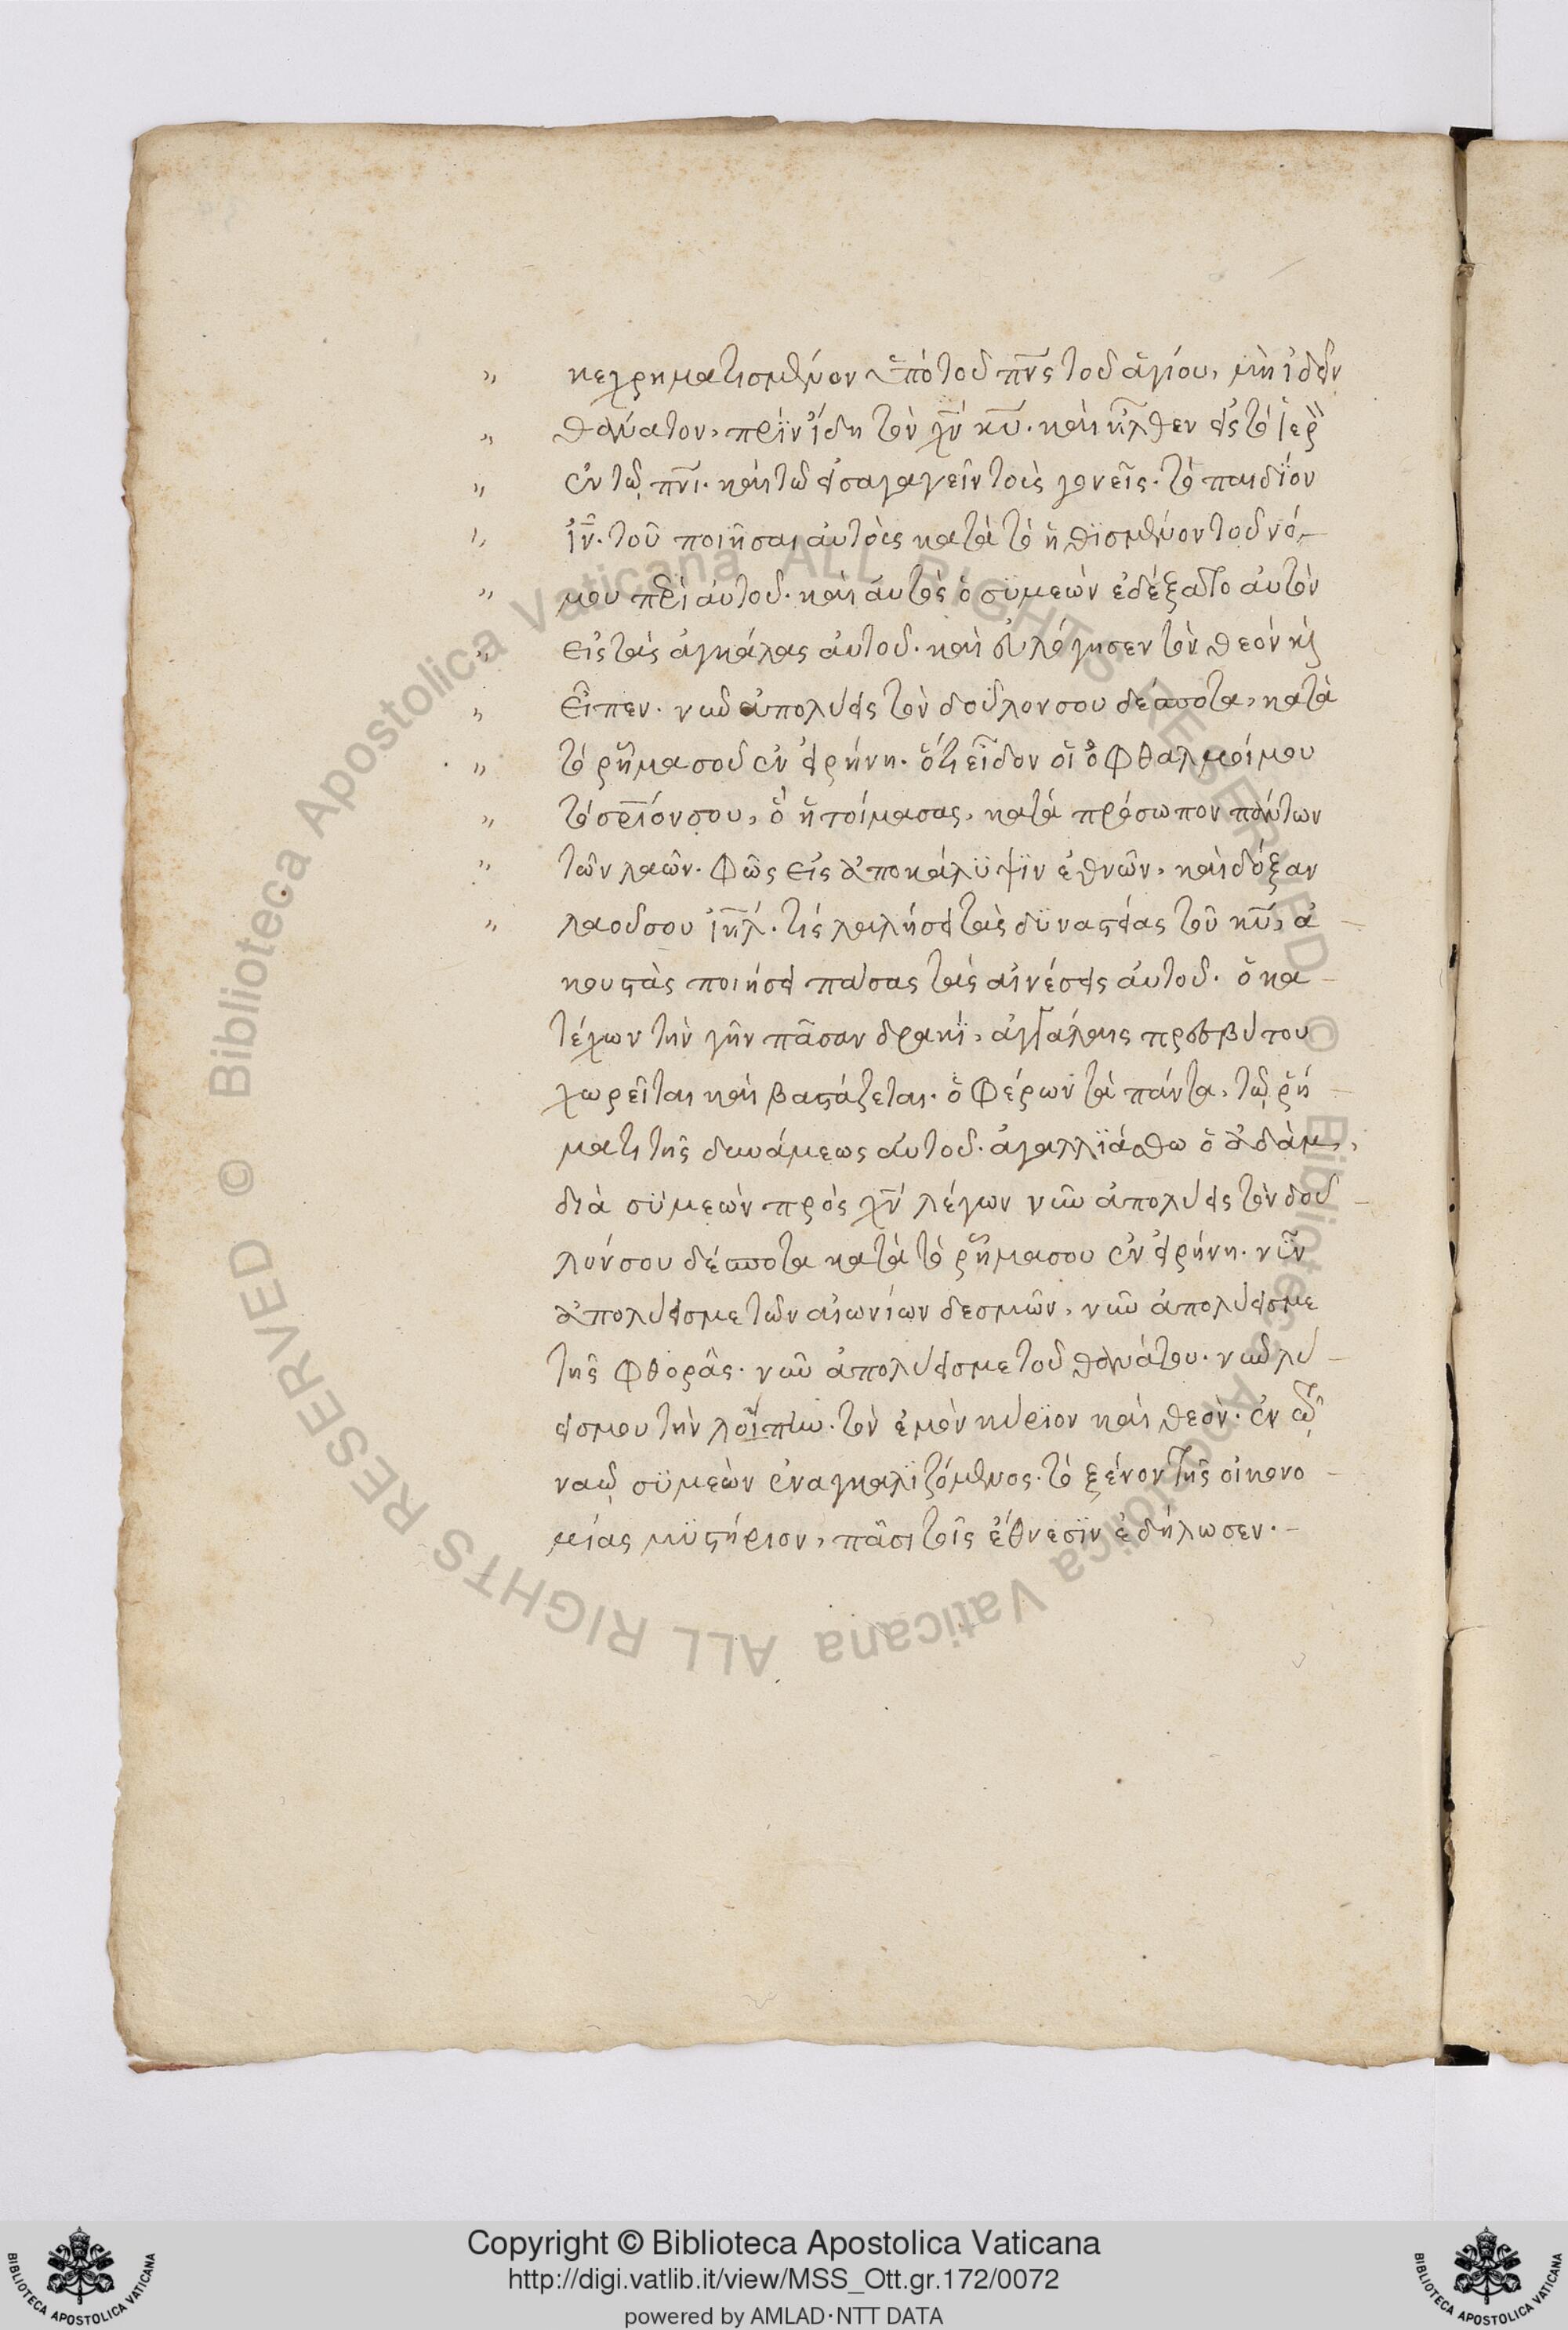 " κεχρηματισμένον ὑπὸ τοῦ πν̅ς τοῦ ἁγίου, μὴ ἰδεῖν
" θάνατον, πρὶν ἴδη τὸν χν̅ κυ̅. καὶ ἦλθεν εἰς τὸ ἱερ̀
" ἐν τῷ πνι̅. καὶ τῶ εἰσαγαγεῖν τοὺς γονεῖς. τὸ παιδίον
" ἰν̅. τοῦ ποιῆσαι αὐτοὺς κατὰ τὸ ἠθϊσμένον τοῦ νό-
" μου περὶ αὐτοῦ. καὶ αὐτὸς ὁ συμεὼν ἐδέξατο αὐτὸν
" εἰς τὰς ἀγκάλας αὐτοῦ. καὶ εὐλόγησεν τὸν θεὸν κὶ
" εἶπεν. νῦν ἀπολύεις τὸν δοῦλον σου δέσποτα, κατὰ
" τὸ ρῆμα σοῦ ἐν εἰρήνη. ὅτι εἶδον οἱ ὀφθαλμοί μου
" τὸ σρ̅ιόν σου, ὃ ἡτοίμασας, κατὰ πρόσωπον πάντων
" τῶν λαῶν. Φῶς εἰς ἀποκάλϋψϊν ἐθνῶν, καὶ δόξαν
" λαοῦ σου ἰη̅λ. τίς λαλήσει τὰς δϋναστείας τοῦ κυ̅, ἀ -
κουστὰς ποιήσει πάσας τὰς αἰνέσεις αὐτοῦ. ὁ κα -
τέχων τὴν γῆν πᾶσαν δρακΐ, ἀγκάλαις πρεσβύτου
χωρεῖται καὶ βαστάζεται. ὁ Φέρων τὰ πάντα, τῷ ρή -
ματι τῆς δυνάμεως αὐτοῦ. ἀγαλλϊάσθω ὁ ἀδὰμ,
διὰ σϋμεὼν πρὸς χν̅ λέγων νῦν ἀπολύεις τὸν δοῦ -
λόν σου δέσποτα κατὰ τὸ ρῆμα σου ἐν εἰρήνη. νῦν
ἀπολύεις με τῶν αἰωνίων δεσμῶν, νῦν ἀπολύεις με
τῆς φθορᾶς. νῦν ἀπολύεις με τοῦ θανάτου. νῦν λύ -
εις μου τὴν λοίπην. τὸν ἐμὸν κύριον καὶ θεόν. ἐν τῷ
ναῷ σϋμεὼν ἐναγκαλϊζόμενος. τὸ ξένον τῆς οἰκονο -
μίας μϋστήριον, πᾶσι τοῖς ἔθνεσϊν ἐδήλωσεν. -
© Biblioteca Apostolica Vaticana ALL RIGHTS RESERVED © Biblioteca Apostolica Vaticana ALL RIGHTS RESERVED
Copyright © Biblioteca Apostolica Vaticana
http://digi.vatlib.it/view/MSS_Ott.gr.172/0072
powered by AMLAD·NTT DATA
BIBLIOTECA APOSTOLICA VATICANA
BIBLIOTECA APOSTOLICA VATICANA